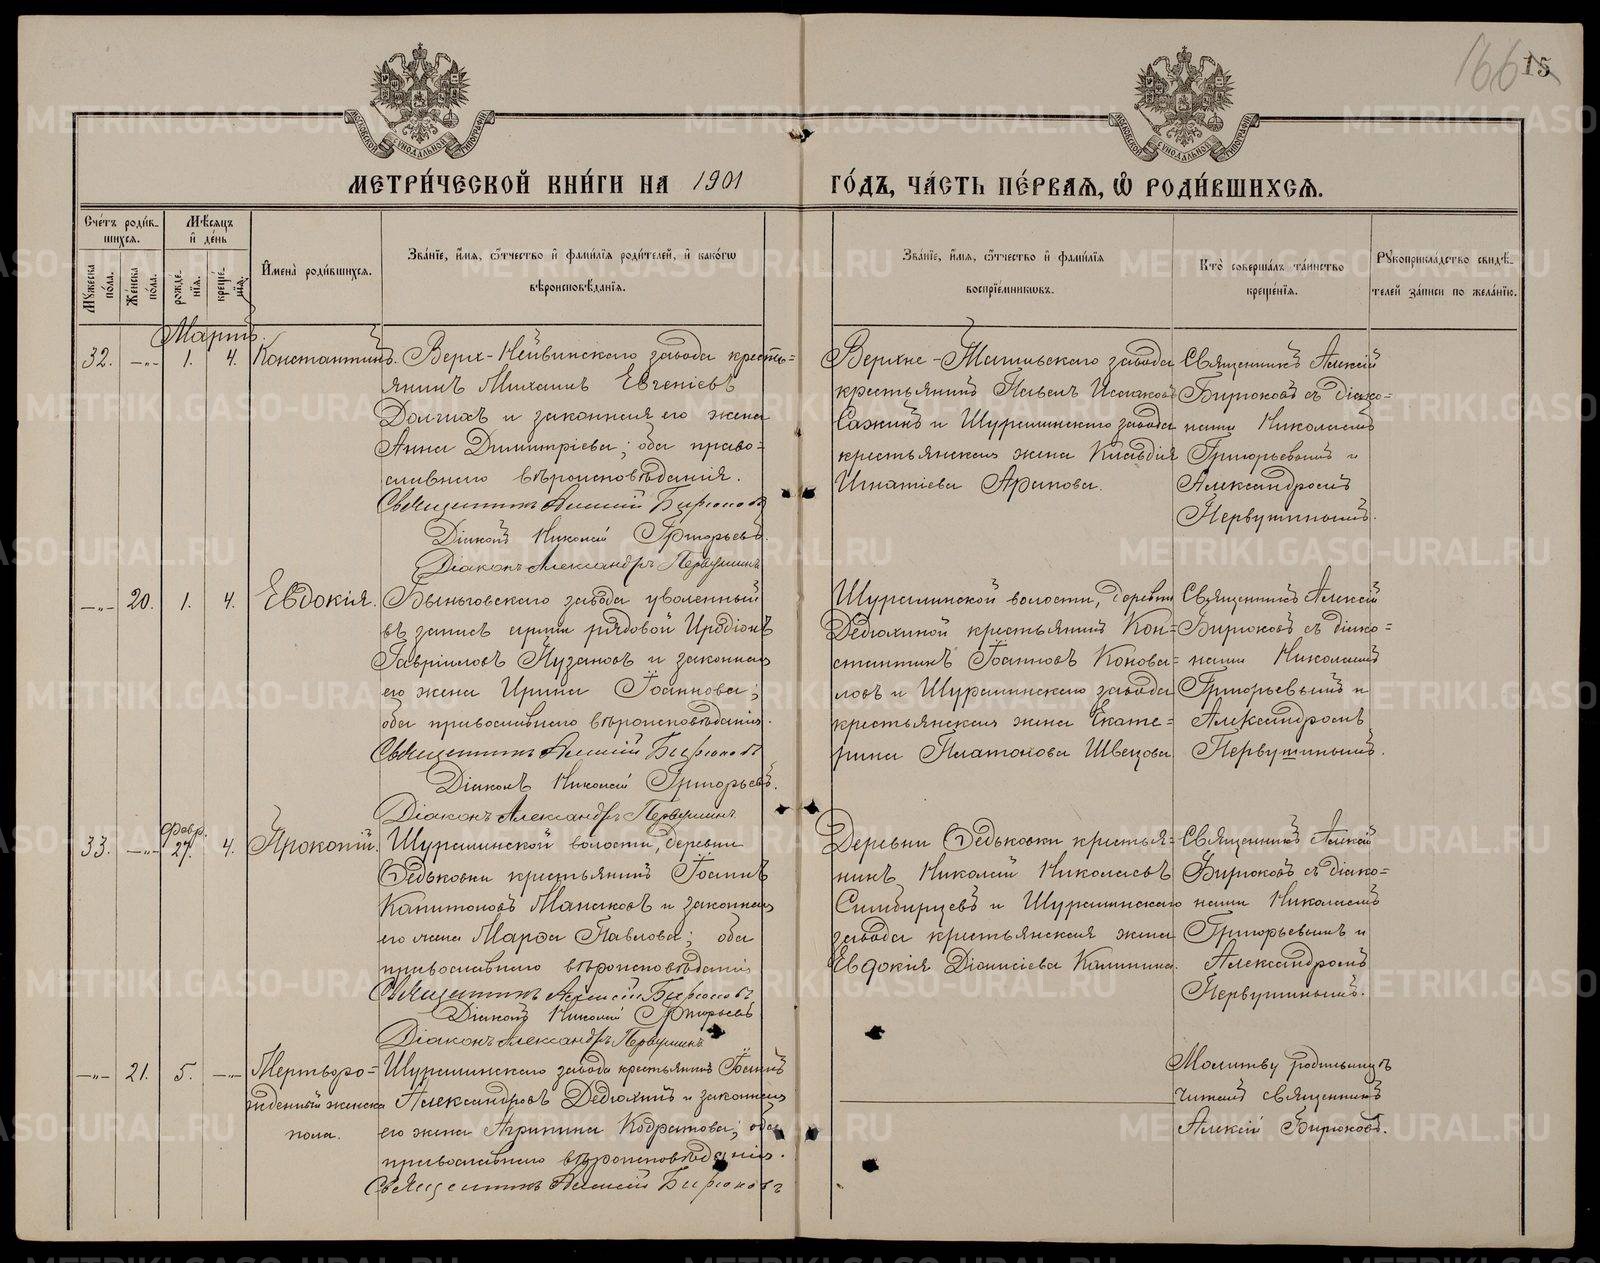 166 15
МОСКОВСКОЙ СѴНОДАЛЬНОЙ ТИПОГРАФІИ
МОСКОВСКОЙ СѴНОДАЛЬНОЙ ТИПОГРАФІИ
МЕТРИ́ЧЕСКОЙ КНИ́ГИ НА 1901 ГО́ДЪ, ЧА́СТЬ ПЕ́РВАѦ, Ѽ РОДИ́ВШИХСѦ.
Сче́тъ роди́в-
шихсѧ.
Мꙋ́жеска по́ла.
Же́нска по́ла.
Мѣ́сѧцъ
и҆ де́нь
рожде́-
нїѧ.
креще́-
нїѧ.
И҆мена̀ роди́вшихсѧ.
Зва́нїе, и҆́мѧ, ѻ҆́тчество и҆ фами́лїѧ роди́телей, и҆ како́гѡ
вѣроисповѣ́данїѧ.
Зва́нїе, и҆́мѧ, ѻ҆́тчество и҆ фами́лїѧ
воспрїе́мникѡвъ.
Кто̀ соверша́лъ та́инство
креще́нїѧ.
Рꙋкоприкла́дство свидѣ́-
телей за́писи по жела́нїю.
Мартъ.
32. —„— 1. 4. Константинъ.
Верхъ-Нейвинскаго завода кресть=
янинъ Михаилъ Евгеніевъ
Долгихъ и законная его жена
Анна Димитріева; оба право=
славнаго вѣроисповѣданія.
Священникъ Алексій Бирюковъ
Діаконъ Николай Григорьевъ.
Діаконъ Александръ Первушинъ
Верхне-Тагильскаго завода
крестьянинъ Павелъ Исааковъ
Сажинъ и Шуралинскаго завода
крестьянская жена Клавдія
Игнатіева Арапова.
Священникъ Алексій
Бирюковъ съ діако=
нами Николаемъ
Григорьевымъ и
Александромъ
Первушинымъ.
—„— 20. 1. 4. Евдокія.
Быньговскаго завода уволенный
въ запасъ арміи рядовой Иродіонъ
Гавріиловъ Пузановъ и законная
его жена Ирина Іоаннова;
оба православнаго вѣроисповѣданія.
Священникъ Алексій Бирюковъ
Діаконъ Николай Григорьевъ.
Діаконъ Александръ Первушинъ
Шуралинской волости, деревни
Дедюхиной крестьянинъ Кон=
стантинъ Іоанновъ Конова=
ловъ и Шуралинскаго завода
крестьянская жена Екате=
рина Платонова Швецова
Священникъ Алексій
Бирюковъ съ діако=
нами Николаемъ
Григорьевымъ и
Александромъ
Первушинымъ.
33. —„— Февр. 27. 4. Прокопій.
Шуралинской волости, деревни
Ѳедьковки крестьянинъ Іоаннъ
Капитоновъ Манаковъ и законная
его жена Марѳа Павлова; оба
православнаго вѣроисповѣданія
Священникъ Алексій Бирюковъ
Діаконъ Николай Григорьевъ
Діаконъ Александръ Первушинъ
Деревни Ѳедьковки крестья=
нинъ Николай Николаевъ
Симбирцевъ и Шуралинскаго
завода крестьянская жена
Евдокія Діонисіева Калинина.
Священникъ Алексій
Бирюковъ съ діако=
нами Николаемъ
Григорьевымъ и
Александромъ
Первушинымъ.
—„— 21. 5. —„— Мертворо=
жденный женска
пола.
Шуралинскаго завода крестьянинъ Іоаннъ
Александровъ Дедюхинъ и законная
его жена Агрипина Кодратова; оба
православнаго вѣроисповѣданія.
Священникъ Алексій Бирюковъ
Молитву родильницѣ
читалъ священникъ
Алексій Бирюковъ.
METRIKI.GASO-URAL.RU